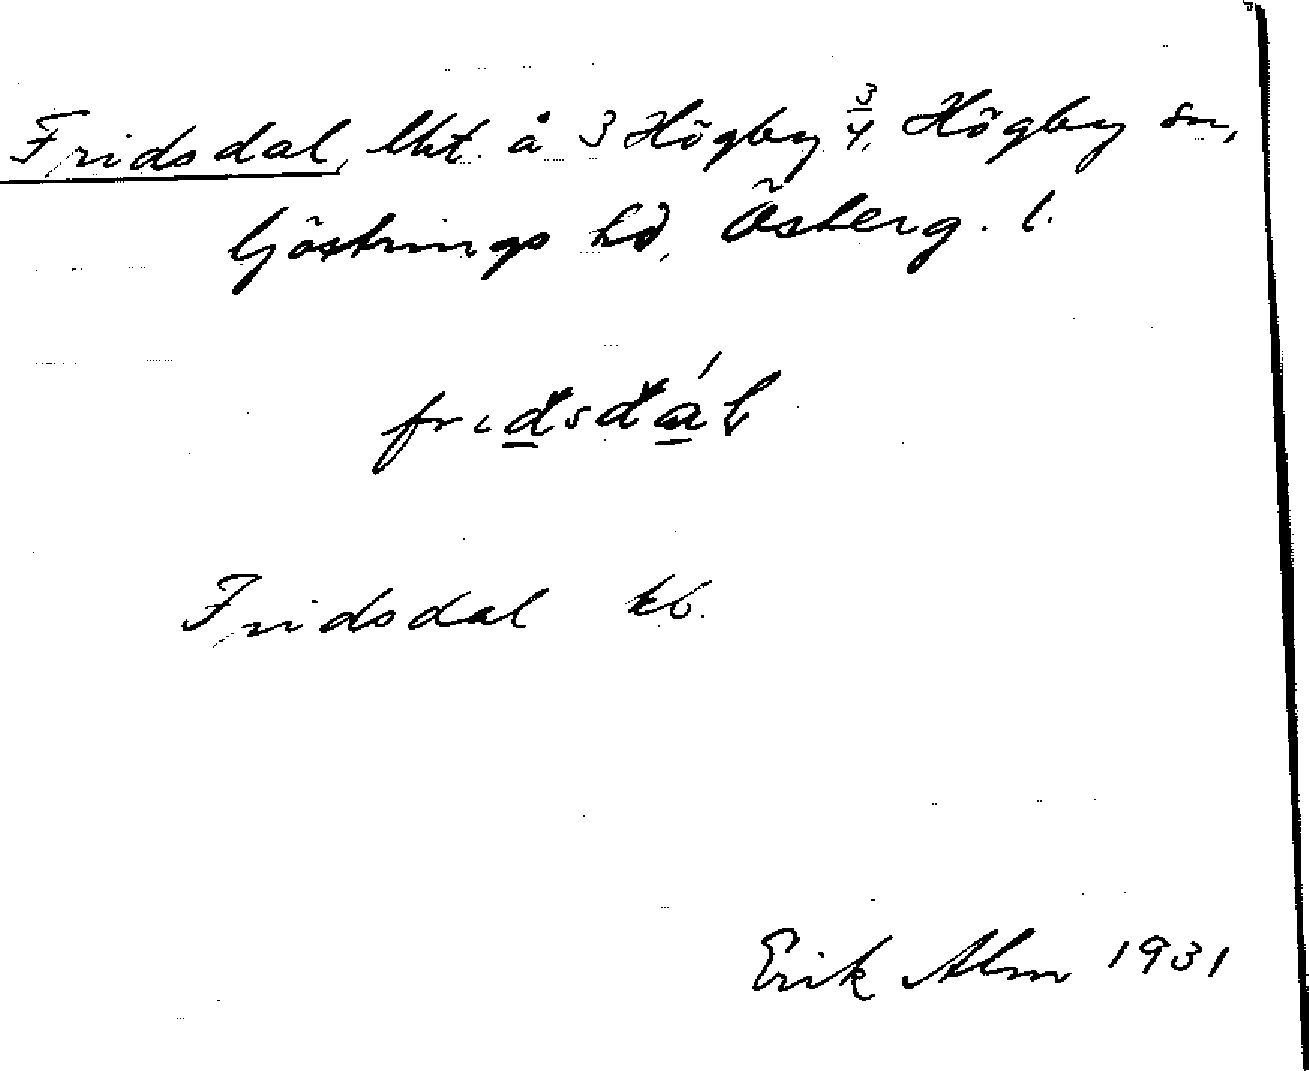 Fridsdal, lht. å 3 Högby 3/4, Högby sn,
Göstrings hd, Österg. l.
Fridsdal kb.
Erik Alm 1931